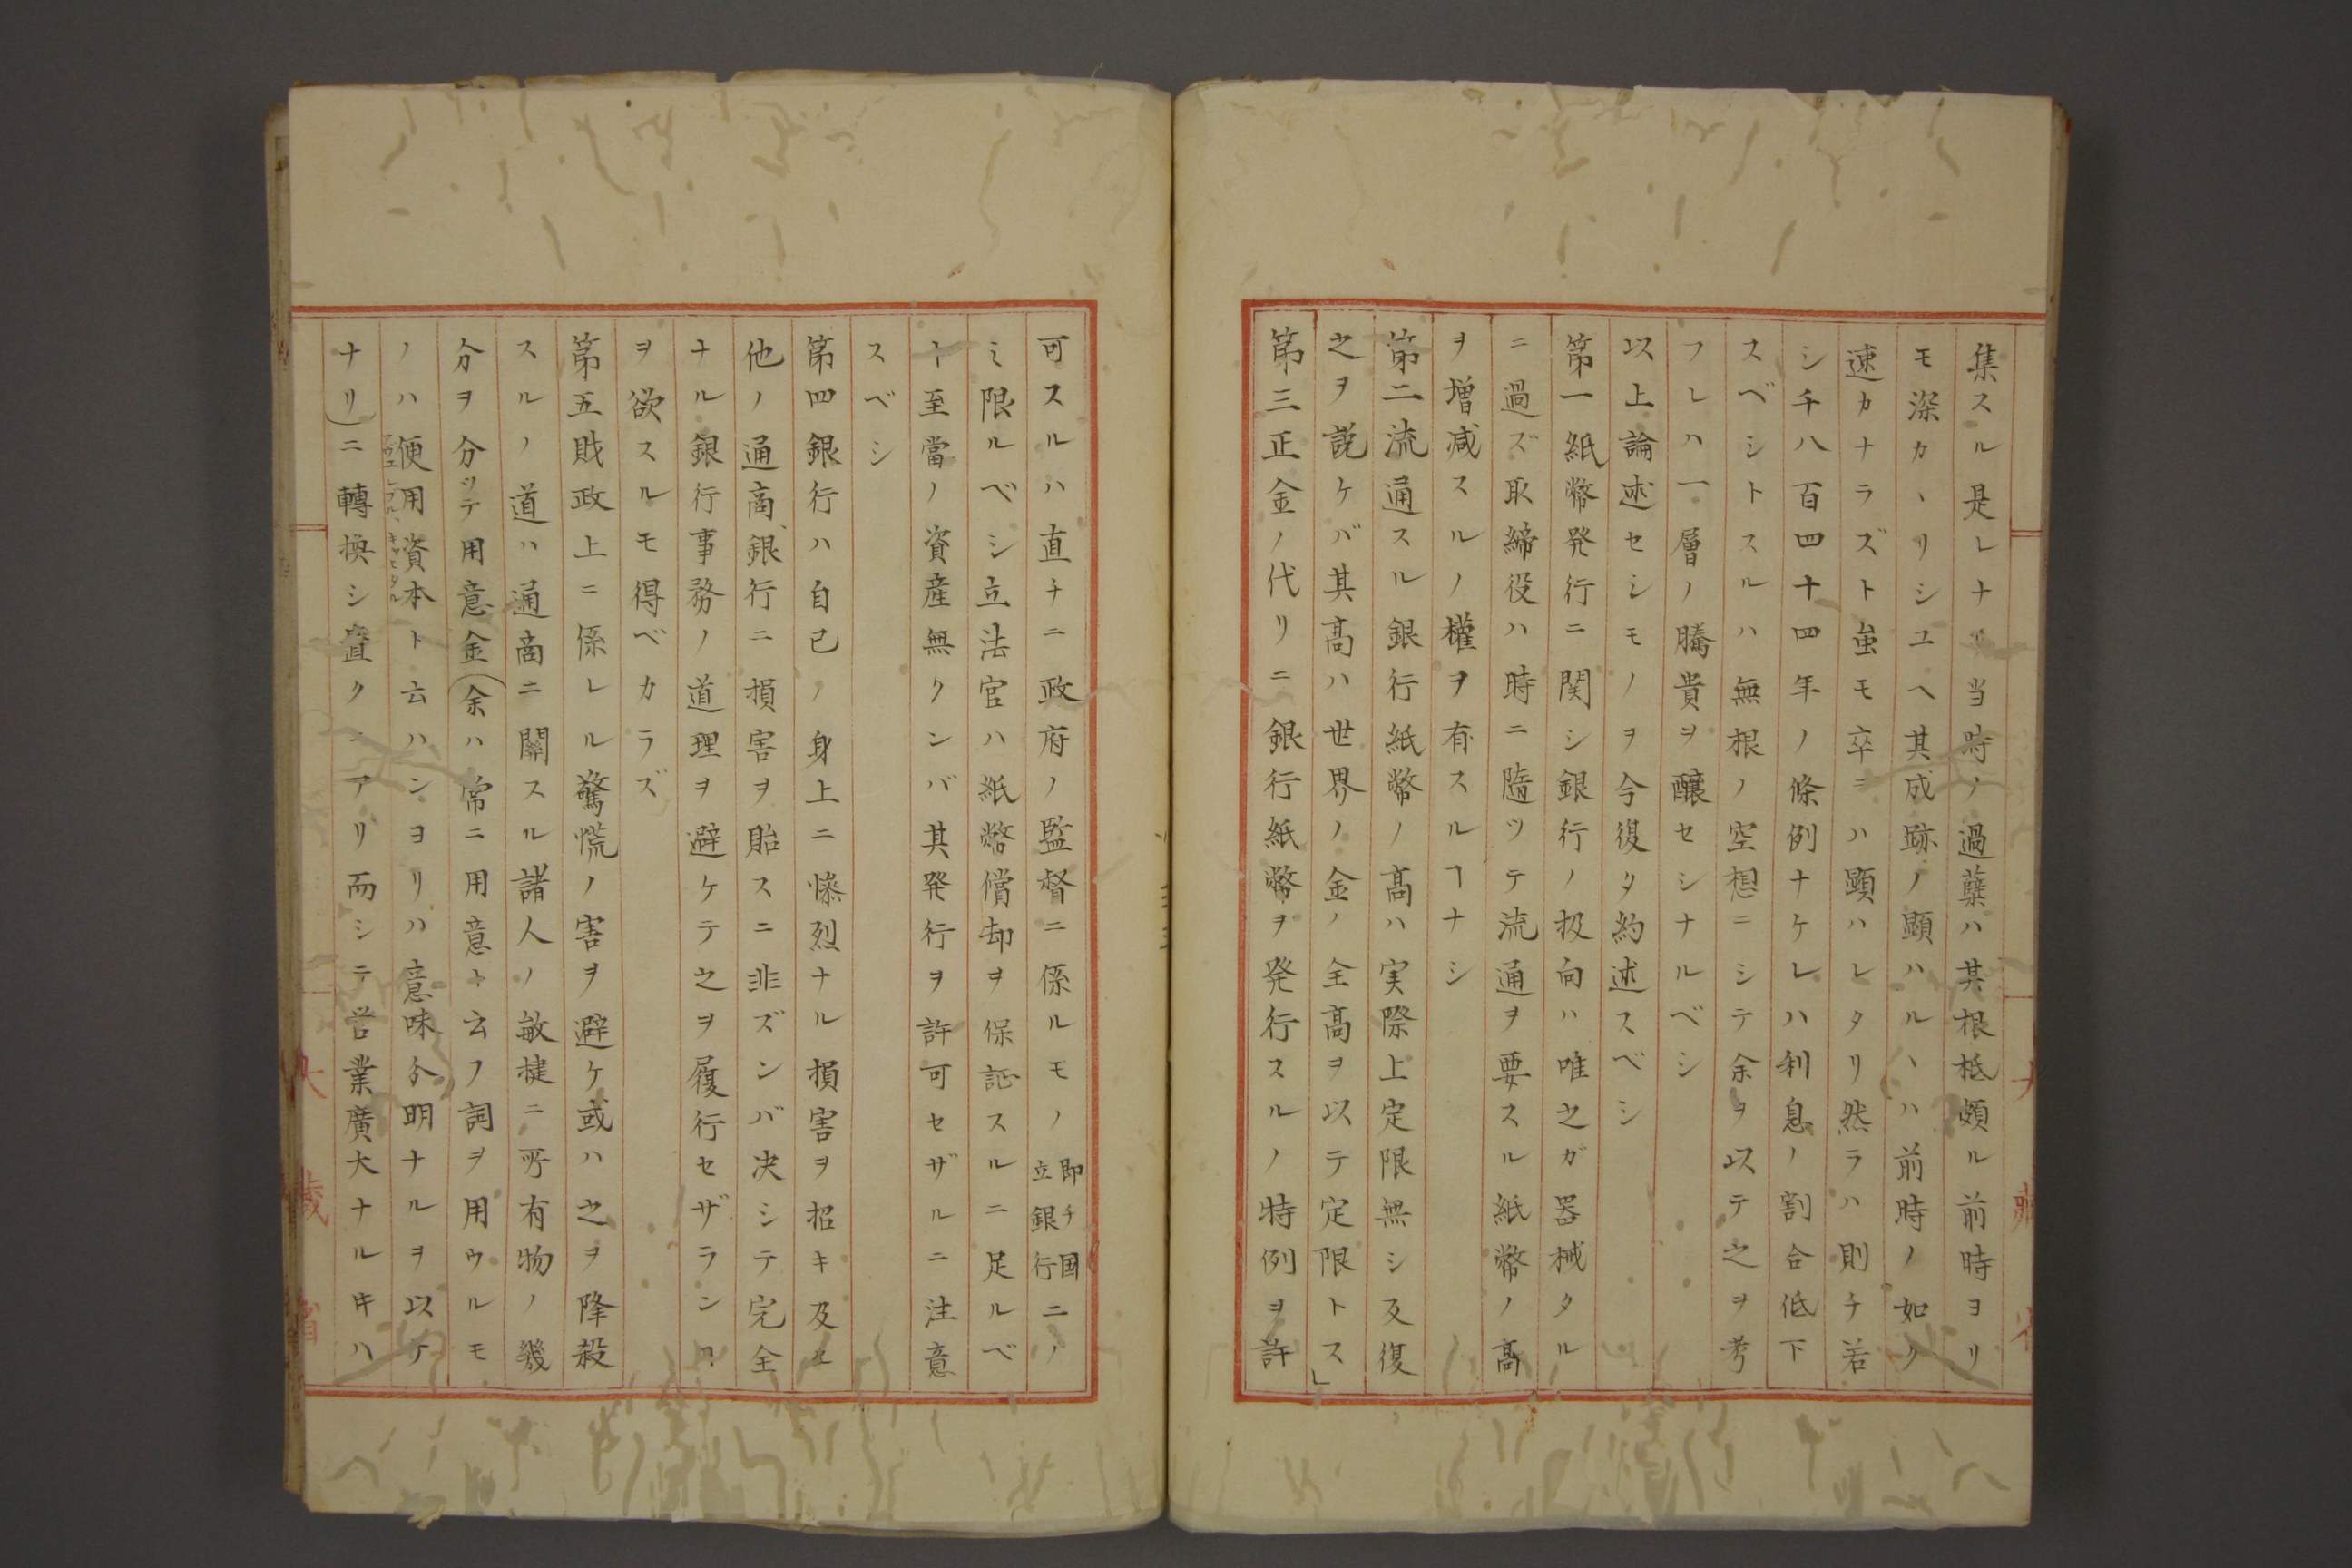 集スル是レナリ当時ノ過蘖ハ其根柢頗ル前時ヨリ
モ深カヽリシユヘ其成跡ノ顕ハルヽハ前時ノ如ク
速カナラズト虽モ卒ニハ顕ハレタリ然ラハ則チ若
シ千八百四十四年ノ條例ナケレハ利息ノ割合低下
スベシトスルハ無根ノ空想ニシテ余ヲ以テ之ヲ考
フレハ一層ノ騰貴ヲ醸セシナルベシ
以上論述セシモノヲ今復タ約述スベシ
第一紙幣発行ニ関シ銀行ノ扱向ハ唯之ガ器械タル
ニ過ズ取締役ハ時ニ隨ツテ流通ヲ要スル紙幣ノ高
ヲ増减スルノ權ヲ有スルヿナシ
第二流通スル銀行紙幣ノ髙ハ実際上定限無シ反復
之ヲ説ケバ其髙ハ世界ノ金ノ全高ヲ以テ定限トス」
第三正金ノ代リニ銀行紙幣ヲ発行スルノ特例ヲ許
可スルハ直チニ政府ノ監督ニ係ルモノ即チ国立銀行ニノ
ミ限ルベシ立法官ハ紙幣償却ヲ保証スルニ足ルベ
ー至當ノ資産無クンバ其発行ヲ許可セザルニ注意
スベシ
第四銀行ハ自己ノ身上ニ惨烈ナル損害ヲ招キ及ヒ
他ノ通商、銀行ニ損害ヲ貽スニ非ズンバ决シテ完全
ナル銀行事務ノ道理ヲ避ケテ之ヲ履行セザランヿ
ヲ欲スルモ得ベカラズ
第五財政上ニ係レル驚慌ノ害ヲ避ケ或ハ之ヲ降殺
スルノ道ハ通商ニ關スル諸人ノ敏捷ニ所有物ノ幾
分ヲ分ツテ用意金(余ハ常ニ用意ト云フ詞ヲ用ウルモ
ノハ便用資本ト云ハンヨリハ意味分明ナルヲ以テ
ナリ)ニ轉換シ置クニアリ而シテ営業廣大ナルキハ
大蔵省